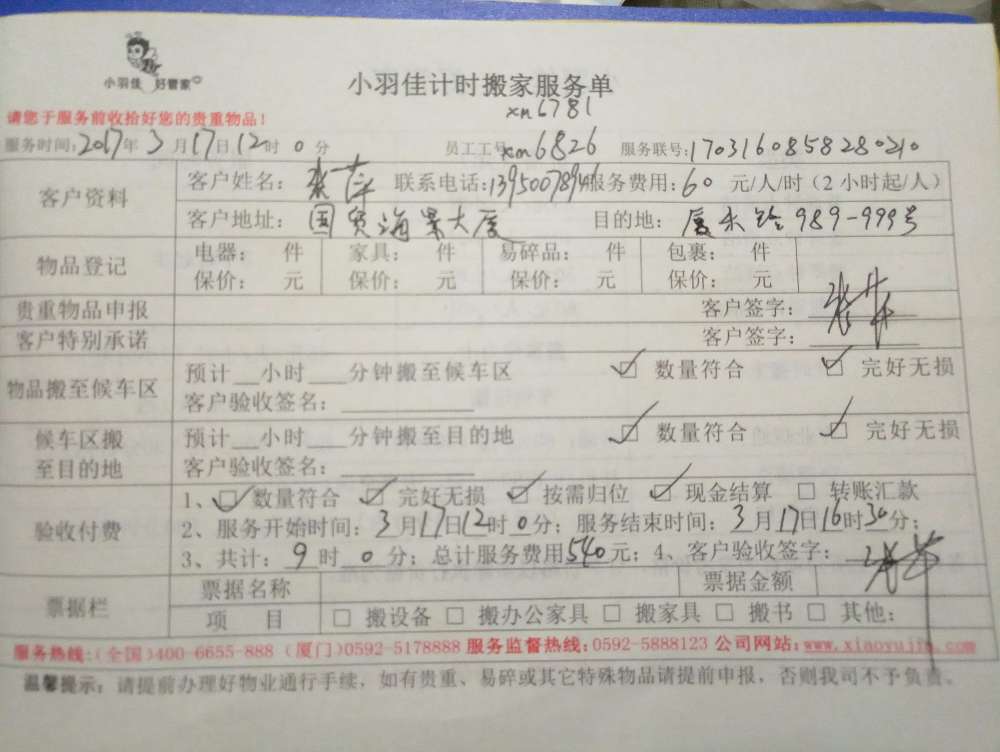 小羽佳 好管家
小羽佳计时搬家服务单
xm6781
请您于服务前收拾好您的贵重物品！
服务时间：2017年3月17日12时0分 员工工号：xm6826 服务联号：1703160858280210
客户资料 客户姓名： 联系电话： 服务费用：60元/人/时（2小时起/人）
客户地址：国贸海景大厦 目的地：厦禾路989-999号
物品登记 电器： 件 家具： 件 易碎品： 件 包裹： 件
保价： 元 保价： 元 保价： 元 保价： 元
贵重物品申报 客户签字：
客户特别承诺 客户签字：
物品搬至候车区 预计__小时___分钟搬至候车区 ☑ 数量符合 ☑ 完好无损
客户验收签名：
候车区搬至目的地 预计__小时___分钟搬至目的地 ☑ 数量符合 ☑ 完好无损
客户验收签名：
验收付费 1、☑数量符合 ☑完好无损 ☑按需归位 ☑现金结算 □转账汇款
2、服务开始时间：3月17日12时0分；服务结束时间：3月17日16时30分；
3、共计：9时0分；总计服务费用540元；4、客户验收签字：
票据栏 票据名称 票据金额
项 目 □搬设备 □搬办公家具 □搬家具 □搬书 □其他：
服务热线：（全国）400-6655-888（厦门）0592-5178888 服务监督热线：0592-5888123 公司网站：www.xiaoyujia.com
温馨提示：请提前办理好物业通行手续，如有贵重、易碎或其它特殊物品请提前申报，否则我司不予负责。